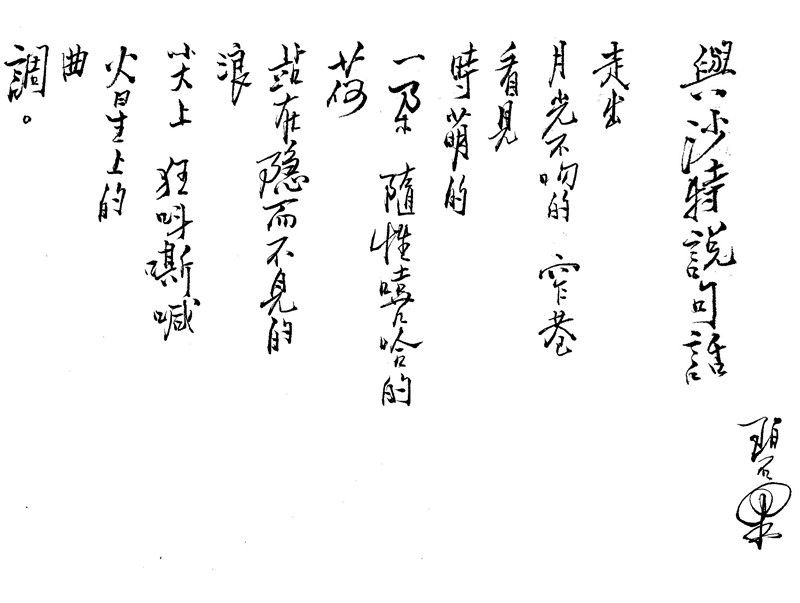 與沙特說句話
碧果
走出
月光不吻的 窄巷
看見
時萌的
一朵 隨性嘻哈的
荷
站在隱而不見的
浪
尖上 狂叫嘶喊
火星上的
曲
調。